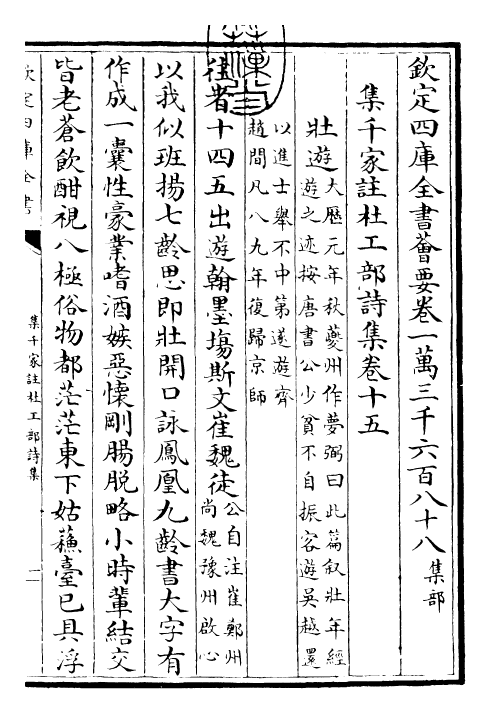 欽定四庫全書薈要卷一萬三千六百八十八集部
集千家註杜工部詩集卷十五
壯遊大歷元年秋夔州作夢弼曰此篇叙壯年經
遊之迹按唐書公少貧不自振客遊吳越還
以進士舉不中第遂遊齊
趙間凡八九年復歸京師
往者十四五出遊翰墨場斯文崔魏徒公自注崔鄭州
尚魏豫州啟心
以我似班揚七齡思即壯開口詠鳳凰九齡書大字有
作成一囊性豪業嗜酒嫉惡懷剛腸脫略小時輩結交
皆老蒼飲酣視八極俗物都茫茫東下姑蘓臺已具浮
欽定四庫全書
集千家註杜工部詩集
一